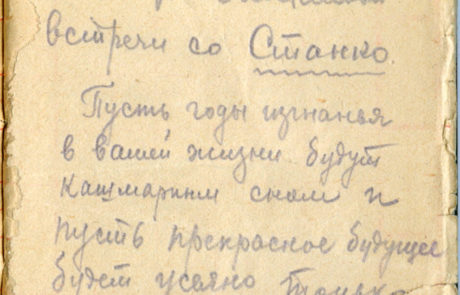 встречи со Станко.
Пусть годы изгнанья
в вашей жизни будут
кашмарным сном и
пусть прекрасное будущее
будет усеяно только